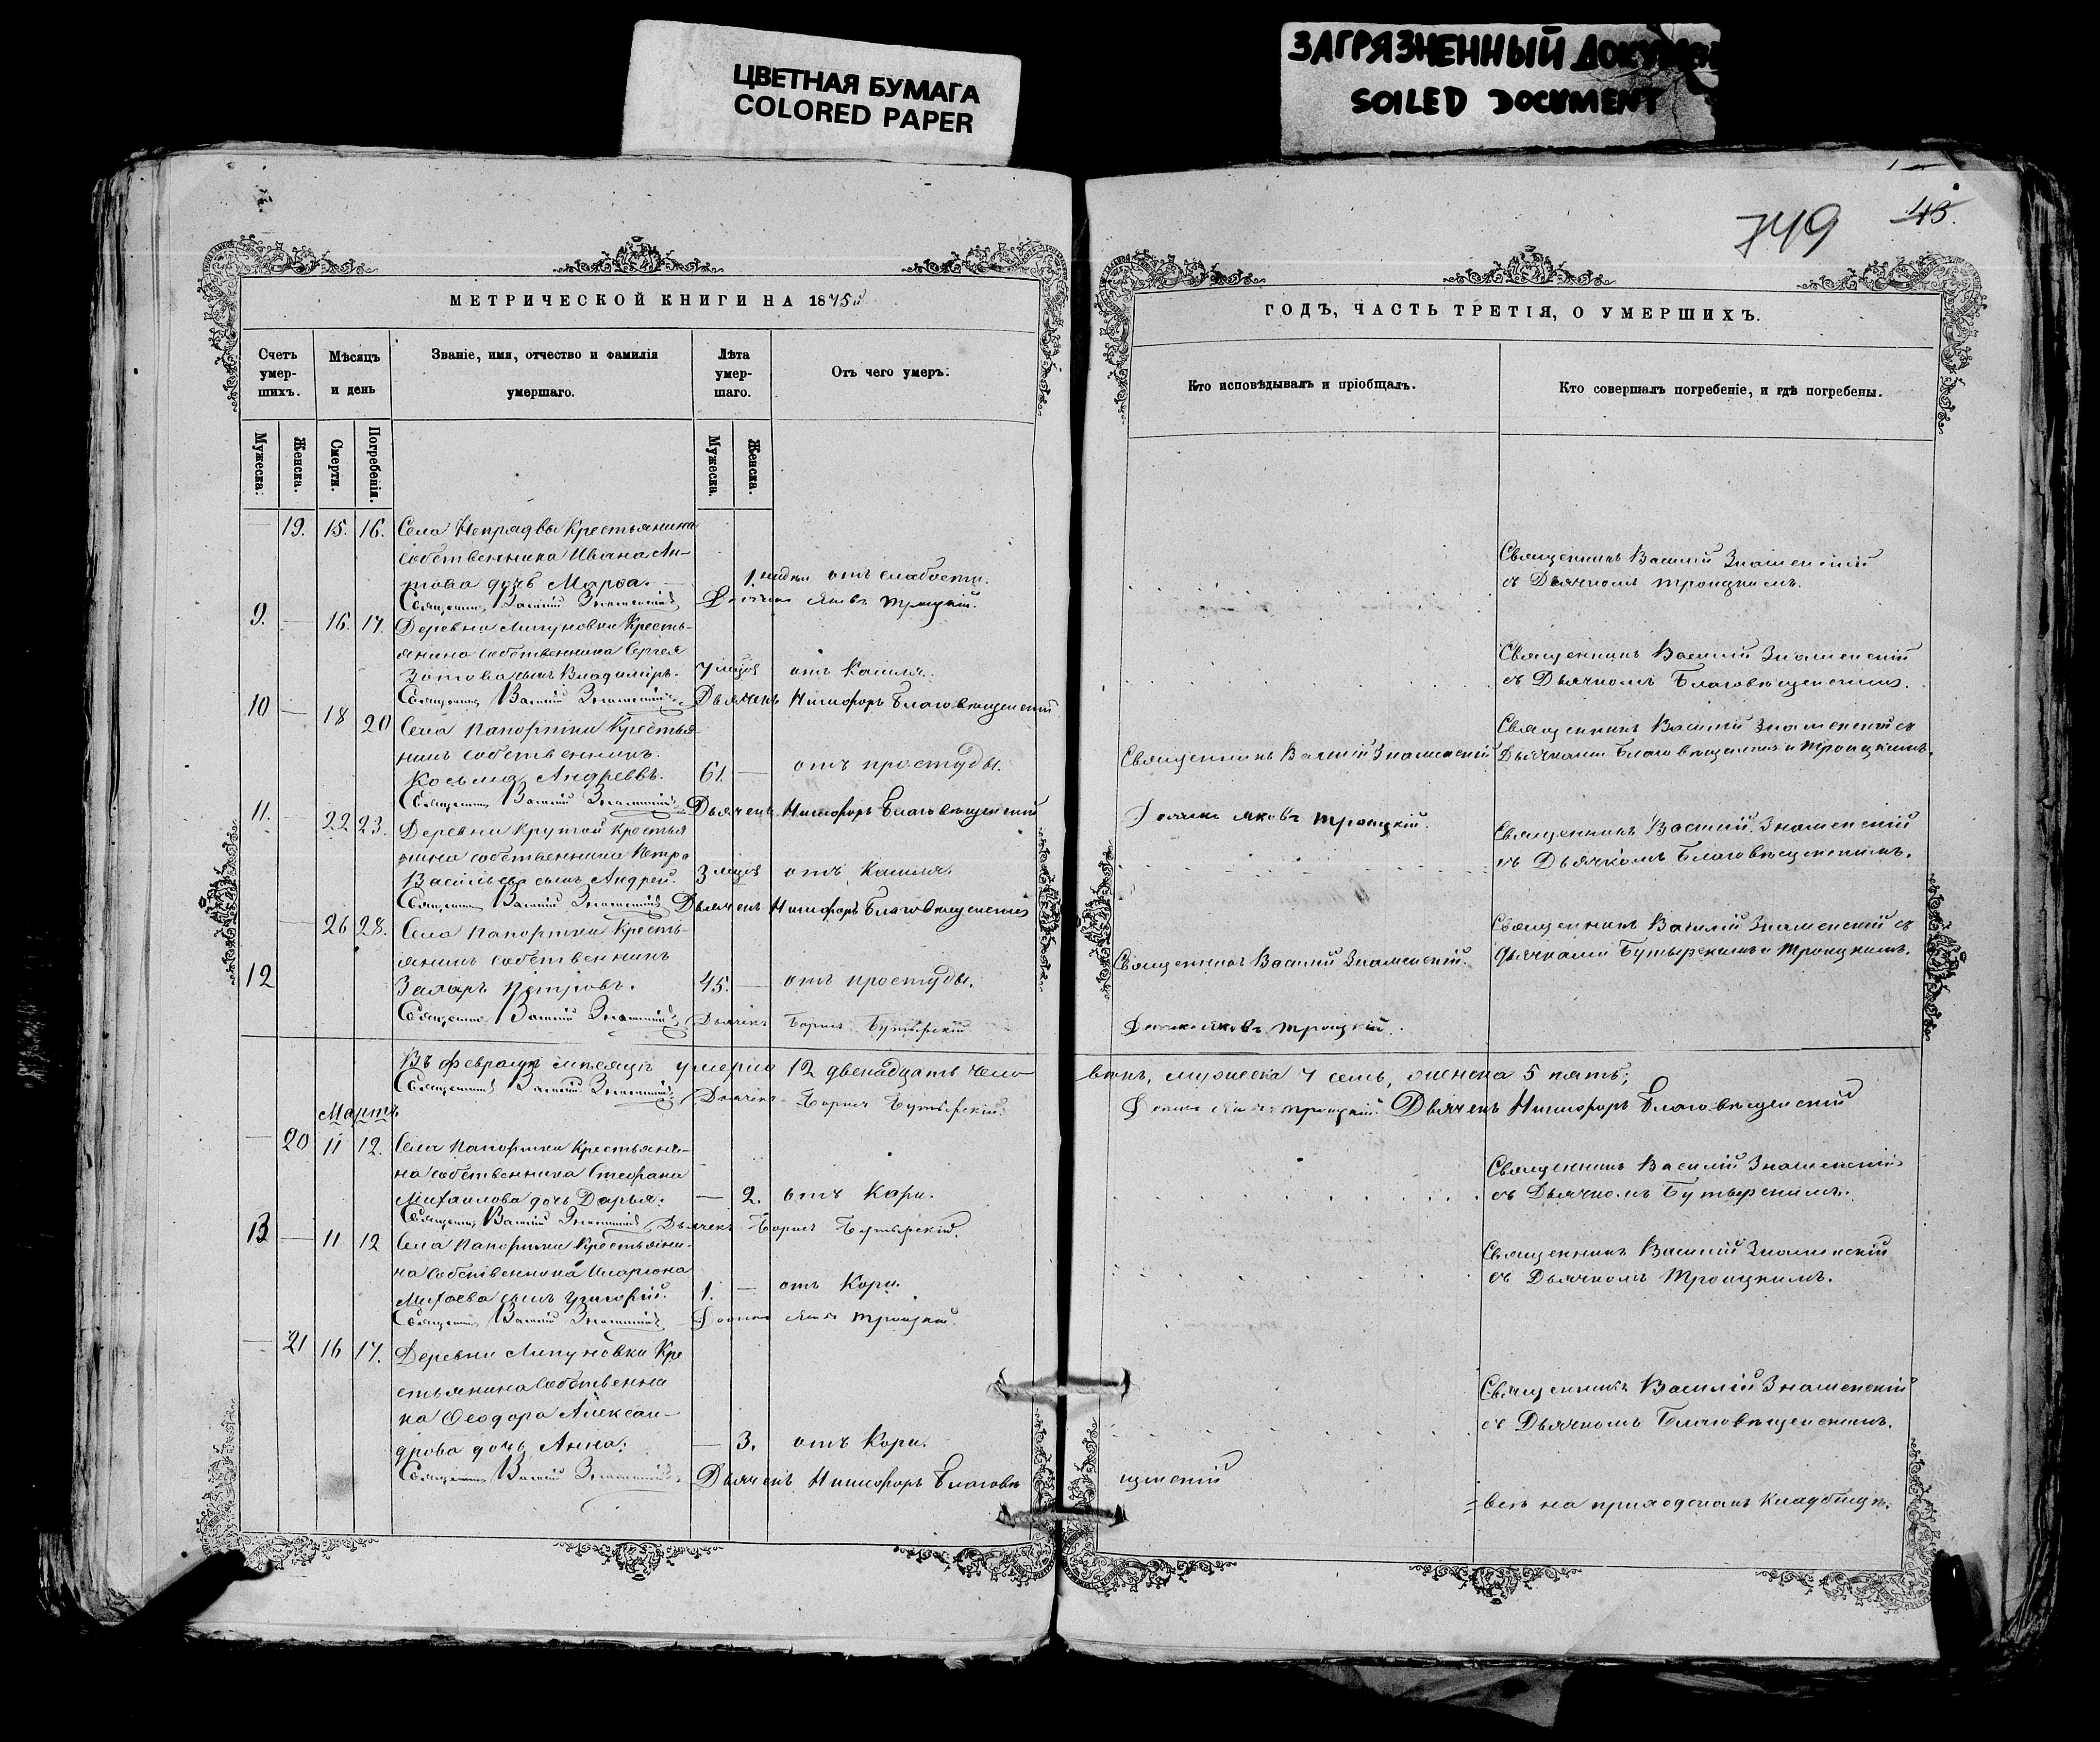 ЦВЕТНАЯ БУМАГА
COLORED PAPER
ЗАГРЯЗНЕННЫЙ ДОКУМЕН
SOILED DOCUMENT
749 43.
МЕТРИЧЕСКОЙ КНИГИ НА 1875й
Счетъ умер-шихъ.
Мѣсяцъ и день
Званіе, имя, отчество и фамилія умершаго.
Лѣта умер-шаго.
Отъ чего умеръ.
Мужеска.
Женска.
Смерти.
Погребенія.
Мужеска.
Женска.
19. 15. 16. Села Непрядвы Крестьянина
собственника Ивана Ан-
това дочь Марѳа. 1. недѣли отъ слабости.
Священникъ Василій Знаменскій Дьячекъ Яковъ Троицкій.
9. — 16. 17. Деревни Липуновки Кресть-
янина собственника Сергея
Зотова сынъ Владиміръ. 7 мѣсяцъ отъ Кашля.
Священникъ Василій Знаменскій Дьячекъ Никифоръ Благовѣщенскій
10 — 18 20 Села Папортки Крестья-
нинъ собственникъ
Косьма Андреевъ. 61. — отъ простуды.
Священникъ Василій Знаменскій Дьячекъ Никифоръ Благовѣщенскій
11. — 22 23. Деревни Крутой Крестья
нина собственника Петра
Васильева сынъ Андрей. 3 мѣсяцъ отъ Кашля.
Священникъ Василій Знаменскій Дьячекъ Никифоръ Благовѣщенскій
12 — 26 28. Села Папортки Кресть-
янинъ собственникъ
Захаръ Петровъ. 45. — отъ простуды.
Священникъ Василій Знаменскій Дьячекъ Борисъ Бутырскій
Въ Февралѣ мѣсяцѣ умерло 12 двенадцать чело-
Священникъ Василій Знаменскій Дьячекъ Борисъ Бутырскій
Мартъ
— 20 11 12. Села Папортки Крестьяни-
на собственника Стефана
Михаилова дочь Дарья. — 2. отъ Кори.
Священникъ Василій Знаменскій Дьячекъ Борисъ Бутырскій.
13 — 11 12 Села Папортки Крестьяни-
на собственника Иларіона
сынъ Григорій. 1. — отъ Кори
Священникъ Василій Знаменскій Дьячекъ Яковъ Троицкій.
— 21 16 17. Деревни Липуновки Кре
стьянина Собственни
ка Ѳеодора Алексан-
дрова дочь Анна. — 3. отъ Кори.
Священникъ Василій Знаменскій Дьячекъ Никифоръ Благовѣ
ГОДЪ, ЧАСТЬ ТРЕТІЯ, О УМЕРШИХЪ.
Кто исповѣдывалъ и пріобщалъ.
Кто совершалъ погребеніе, и гдѣ погребены.
Священникъ Василій Знаменскій
съ Дьячкомъ Троицкимъ.
Священникъ Василій Знаменскій
съ Дьячкомъ Благовѣщенскимъ.
Священникъ Василій Знаменскій съ
Священникъ Василій Знаменскій Дьячками Благовѣщенскимъ и Троицкимъ.
Дьячекъ Яковъ Троицкій.
Священникъ Василій Знаменскій
съ Дьячкомъ Благовѣщенскимъ.
Священникъ Василій Знаменскій съ
Священникъ Василій Знаменскій. Дьячками Бутырскимъ и Троицкимъ.
Дьячекъ Яковъ Троицкій.
вѣкъ, мужеска 7 семь, женска 5 пять;
Дьячекъ Яковъ Троицкій Дьячекъ Никифоръ Благовѣщенскій
Священникъ Василій Знаменскій
съ Дьячкомъ Бутырскимъ.
Священникъ Василій Знаменскій
съ Дьячкомъ Троицкимъ.
Священникъ Василій Знаменскій
съ Дьячкомъ Благовѣщенскимъ.
щенскій
=всѣ на приходскомъ кладбищѣ.